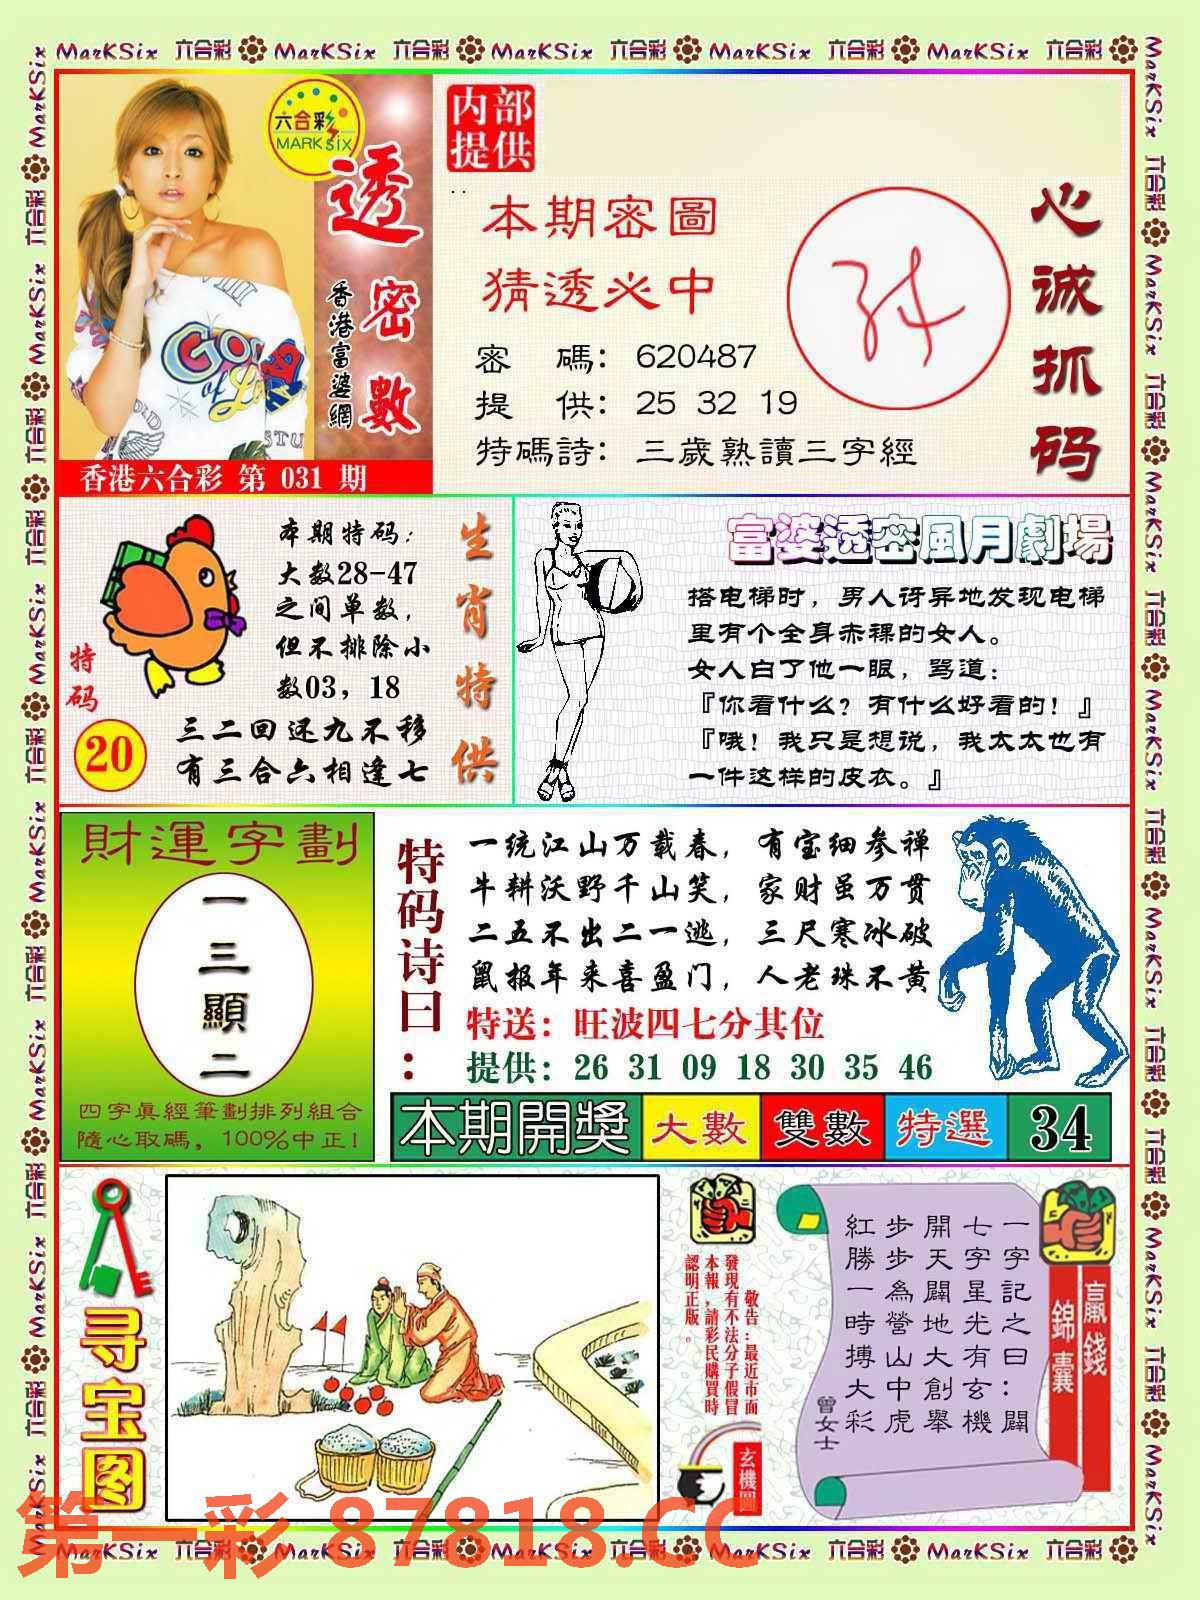 MarKSix 六合彩 MarKSix 六合彩 MarKSix 六合彩 MarKSix 六合彩 MarKSix 六合彩
六合彩
MARK SIX
透密數
香港富婆網
香港六合彩 第 031 期
内部
提供
本期密圖
猜透必中
密 碼: 620487
提 供: 25 32 19
特碼詩: 三歲熟讀三字經
心诚抓码
特码
20
本期特码:
大数28-47
之间单数,
但不排除小
数03, 18
三二回还九不移
有三合六相逢七
生肖特供
富婆透密風月劇場
搭电梯时,男人讶异地发现电梯
里有个全身赤裸的女人。
女人白了他一眼,骂道:
『你看什么?有什么好看的!』
『哦!我只是想说,我太太也有
一件这样的皮衣。』
財運字劃
一
三
顯
二
四字真經筆劃排列組合
隨心取碼, 100%中正!
特码诗曰:
一统江山万载春, 有宝细参禅
牛耕沃野千山笑, 家财虽万贯
二五不出二一逃, 三尺寒冰破
鼠报年来喜盈门, 人老珠不黄
特送: 旺波四七分其位
提供: 26 31 09 18 30 35 46
本期開獎 大數 雙數 特選 34
寻宝图
敬告:最近市面
發現有不法分子假冒
本報,請彩民購買時
認明正版。
玄機圖
一字記之曰:闢
七字星光有玄機
開天闢地大創舉
步步為營山中虎
紅勝一時搏大彩
曾女士
贏錢
錦囊
第一彩 87818.CC
MarKSix 六合彩 MarKSix 六合彩 MarKSix 六合彩 MarKSix 六合彩 MarKSix 六合彩